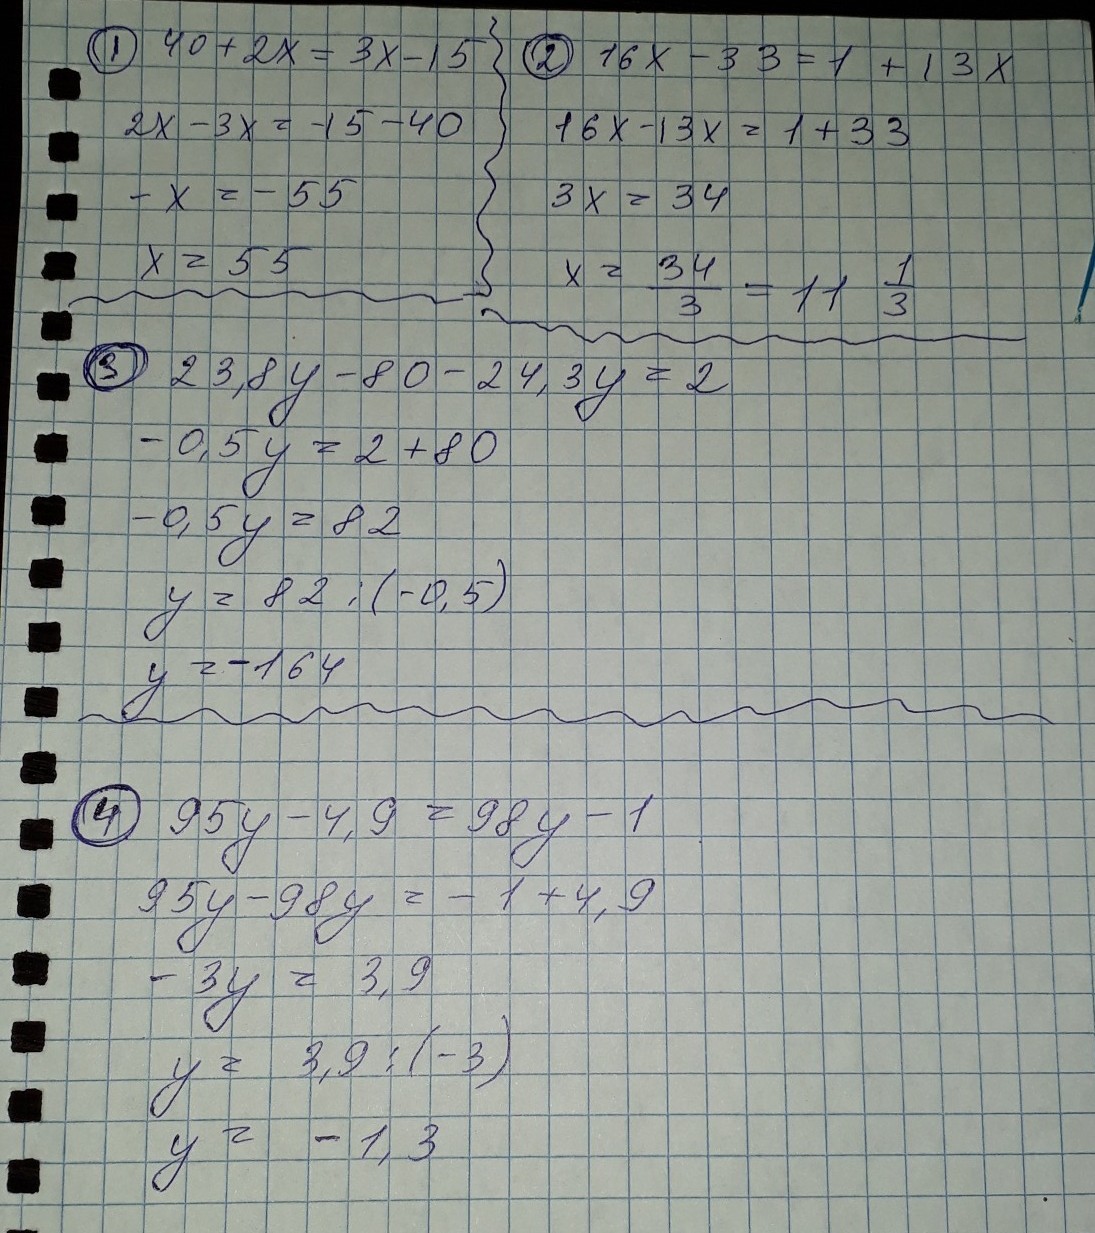 ① 40+2x=3x-15
2x-3x=-15-40
-x=-55
x=55
② 16x-33=1+13x
16x-13x=1+33
3x=34
x=34/3=11 1/3
③ 23,8y-80-24,3y=2
-0,5y=2+80
-0,5y=82
y=82:(-0,5)
y=-164
④ 95y-4,9=98y-1
95y-98y=-1+4,9
-3y=3,9
y=3,9:(-3)
y=-1,3